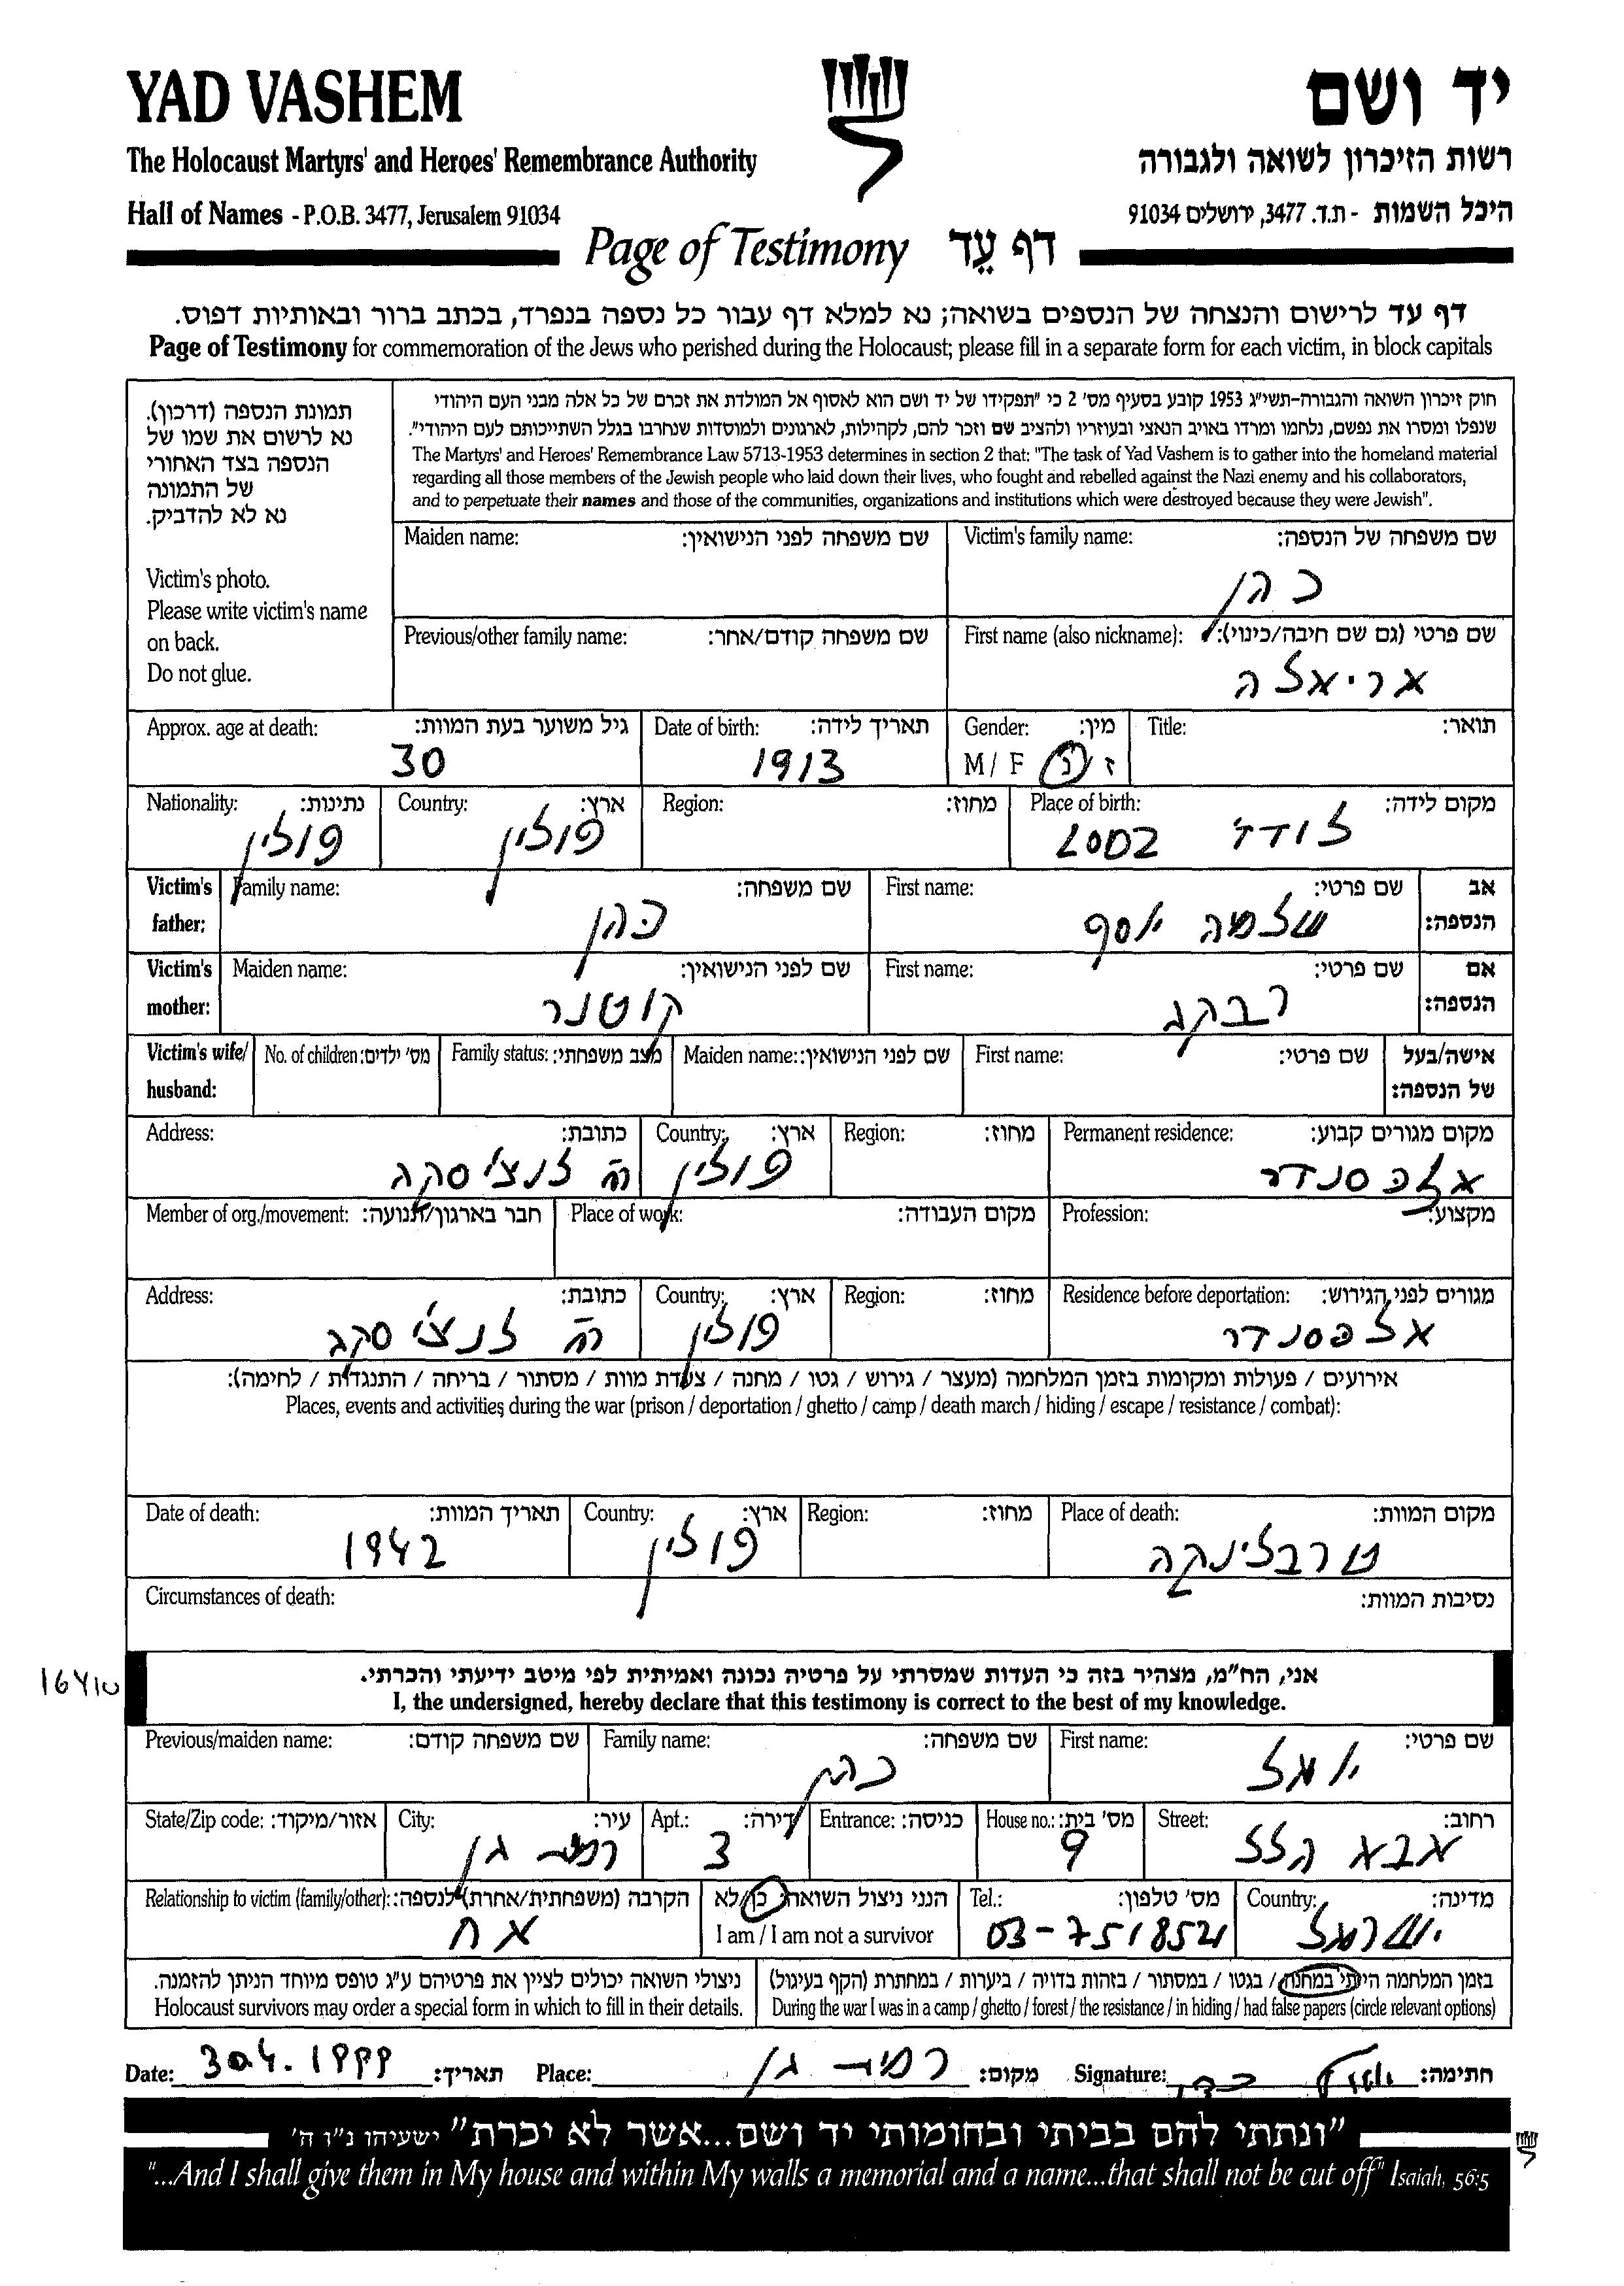 YAD VASHEM
יד ושם
The Holocaust Martyrs' and Heroes' Remembrance Authority
רשות הזיכרון לשואה ולגבורה
Hall of Names - P.O.B. 3477, Jerusalem 91034
היכל השמות - ת.ד. 3477, ירושלים 91034
Page of Testimony דף עֵד
דף עד לרישום והנצחה של הנספים בשואה; נא למלא דף עבור כל נספה בנפרד, בכתב ברור ובאותיות דפוס.
Page of Testimony for commemoration of the Jews who perished during the Holocaust; please fill in a separate form for each victim, in block capitals
תמונת הנספה (דרכון).
נא לרשום את שמו של
הנספה בצד האחורי
של התמונה
נא לא להדביק.
Victim's photo.
Please write victim's name
on back.
Do not glue.
חוק זיכרון השואה והגבורה-תשי"ג 1953 קובע בסעיף מס' 2 כי "תפקידו של יד ושם הוא לאסוף אל המולדת את זכרם של כל אלה מבני העם היהודי
שנפלו ומסרו את נפשם, נלחמו ומרדו באויב הנאצי ובעוזריו ולהציב שם וזכר להם, לקהילות, לארגונים ולמוסדות שנחרבו בגלל השתייכותם לעם היהודי".
The Martyrs' and Heroes' Remembrance Law 5713-1953 determines in section 2 that: "The task of Yad Vashem is to gather into the homeland material
regarding all those members of the Jewish people who laid down their lives, who fought and rebelled against the Nazi enemy and his collaborators,
and to perpetuate their names and those of the communities, organizations and institutions which were destroyed because they were Jewish".
Maiden name: שם משפחה לפני הנישואין:
Victim's family name: שם משפחה של הנספה:
כהן
Previous/other family name: שם משפחה קודם/אחר:
First name (also nickname): שם פרטי (גם שם חיבה/כינוי):
אריאלה
Approx. age at death: גיל משוער בעת המוות:
30
Date of birth: תאריך לידה:
1913
Gender: מין:
M / F ז / נ
Title: תואר:
Nationality: נתינות:
פולין
Country: ארץ:
פולין
Region: מחוז:
Place of birth: מקום לידה:
לודז' LODZ
Victim's father: Family name: שם משפחה:
כהן
First name: שם פרטי: אב הנספה:
שלמה יוסף
Victim's mother: Maiden name: שם לפני הנישואין:
קוטנר
First name: שם פרטי: אם הנספה:
רבקה
Victim's wife/ husband: No. of children: מס' ילדים: Family status: מצב משפחתי: Maiden name: שם לפני הנישואין: First name: שם פרטי: אישה/בעל של הנספה:
Address: כתובת:
רח' לנצ'יסקה
Country: ארץ:
פולין
Region: מחוז:
Permanent residence: מקום מגורים קבוע:
אלכסנדר
Member of org./movement: חבר בארגון/תנועה: Place of work: מקום העבודה: Profession: מקצוע:
Address: כתובת:
רח' לנצ'יסקה
Country: ארץ:
פולין
Region: מחוז:
Residence before deportation: מגורים לפני הגירוש:
אלכסנדר
אירועים / פעולות ומקומות בזמן המלחמה (מעצר / גירוש / גטו / מחנה / צעדת מוות / מסתור / בריחה / התנגדות / לחימה):
Places, events and activities during the war (prison / deportation / ghetto / camp / death march / hiding / escape / resistance / combat):
Date of death: תאריך המוות:
1942
Country: ארץ:
פולין
Region: מחוז:
Place of death: מקום המוות:
טרבלינקה
Circumstances of death: נסיבות המוות:
אני, הח"מ, מצהיר בזה כי העדות שמסרתי על פרטיה נכונה ואמיתית לפי מיטב ידיעתי והכרתי.
I, the undersigned, hereby declare that this testimony is correct to the best of my knowledge.
Previous/maiden name: שם משפחה קודם:
Family name: שם משפחה:
כהן
First name: שם פרטי:
יואל
State/Zip code: אזור/מיקוד:
City: עיר:
רמת גן
Apt.: דירה:
3
Entrance: כניסה:
House no.: מס' בית:
9
Street: רחוב:
אבא הלל
Relationship to victim (family/other): הקרבה (משפחתית/אחרת) לנספה:
אח
הנני ניצול השואה: כן/לא
I am / I am not a survivor
Tel.: מס' טלפון:
03-7518521
Country: מדינה:
ישראל
ניצולי השואה יכולים לציין את פרטיהם ע"ג טופס מיוחד הניתן להזמנה.
Holocaust survivors may order a special form in which to fill in their details.
בזמן המלחמה הייתי במחנה / בגטו / במסתור / בזהות בדויה / ביערות / במחתרת (הקף בעיגול)
During the war I was in a camp / ghetto / forest / the resistance / in hiding / had false papers (circle relevant options)
Date: 30.4.1999 תאריך: Place: רמת גן מקום: Signature: יואל כהן חתימה:
"ונתתי להם בביתי ובחומותי יד ושם...אשר לא יכרת" ישעיהו נ"ו ה'
"...And I shall give them in My house and within My walls a memorial and a name...that shall not be cut off" Isaiah, 56:5